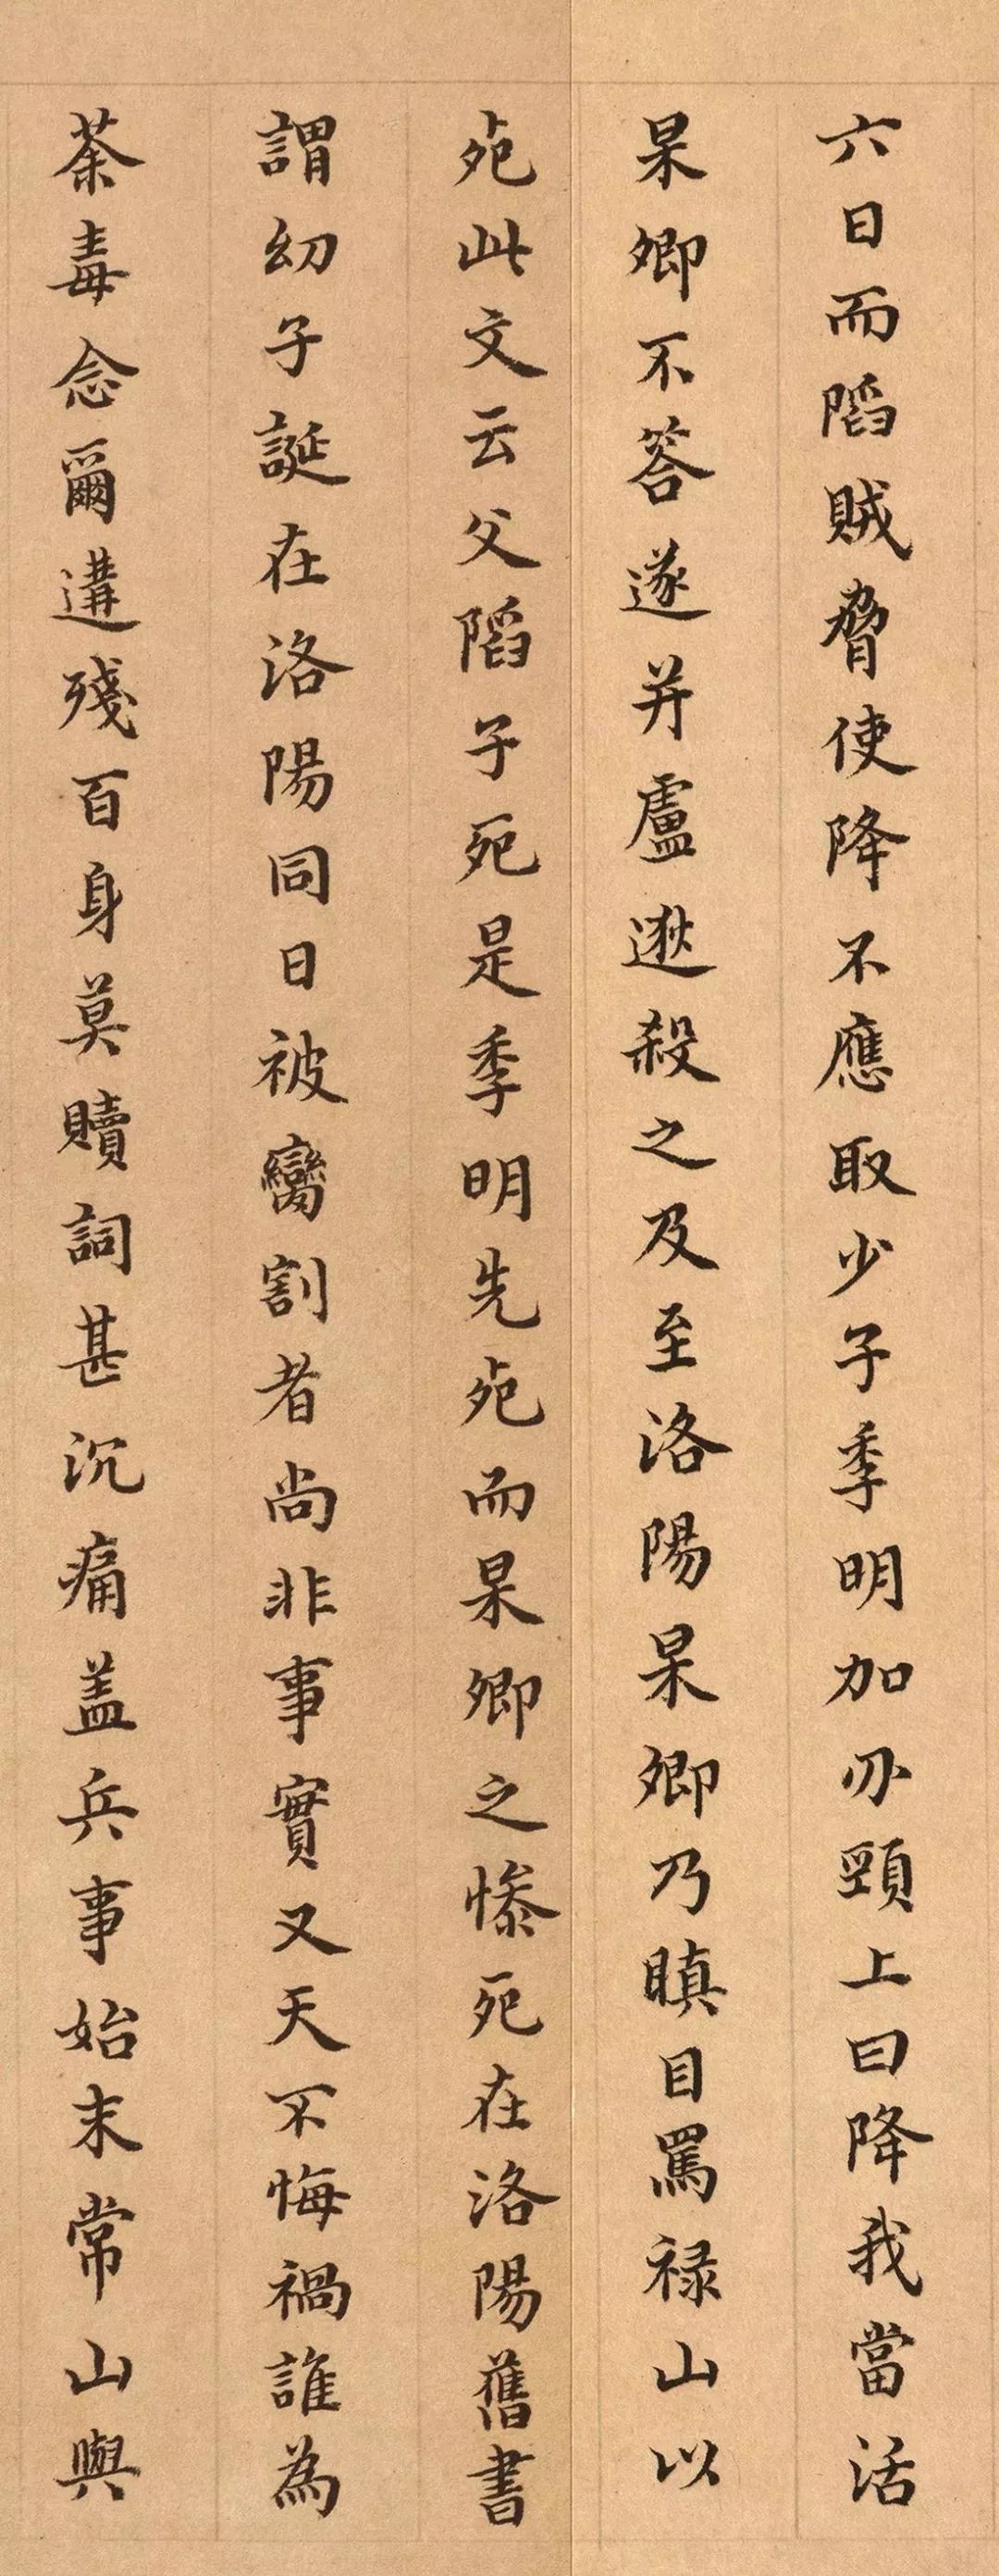 六日而䧟賊脅使降不應取少子季明加刃頸上曰降我當活
杲卿不荅遂并盧逖殺之及至洛陽杲卿乃瞋目罵祿山以
死此文云父䧟子死是季明先死而杲卿之慘死在洛陽舊書
謂幼子誕在洛陽同日被臠割者尚非事實又天不悔禍誰為
荼毒念爾遘殘百身莫贖詞甚沉痛盖兵事始末常山與